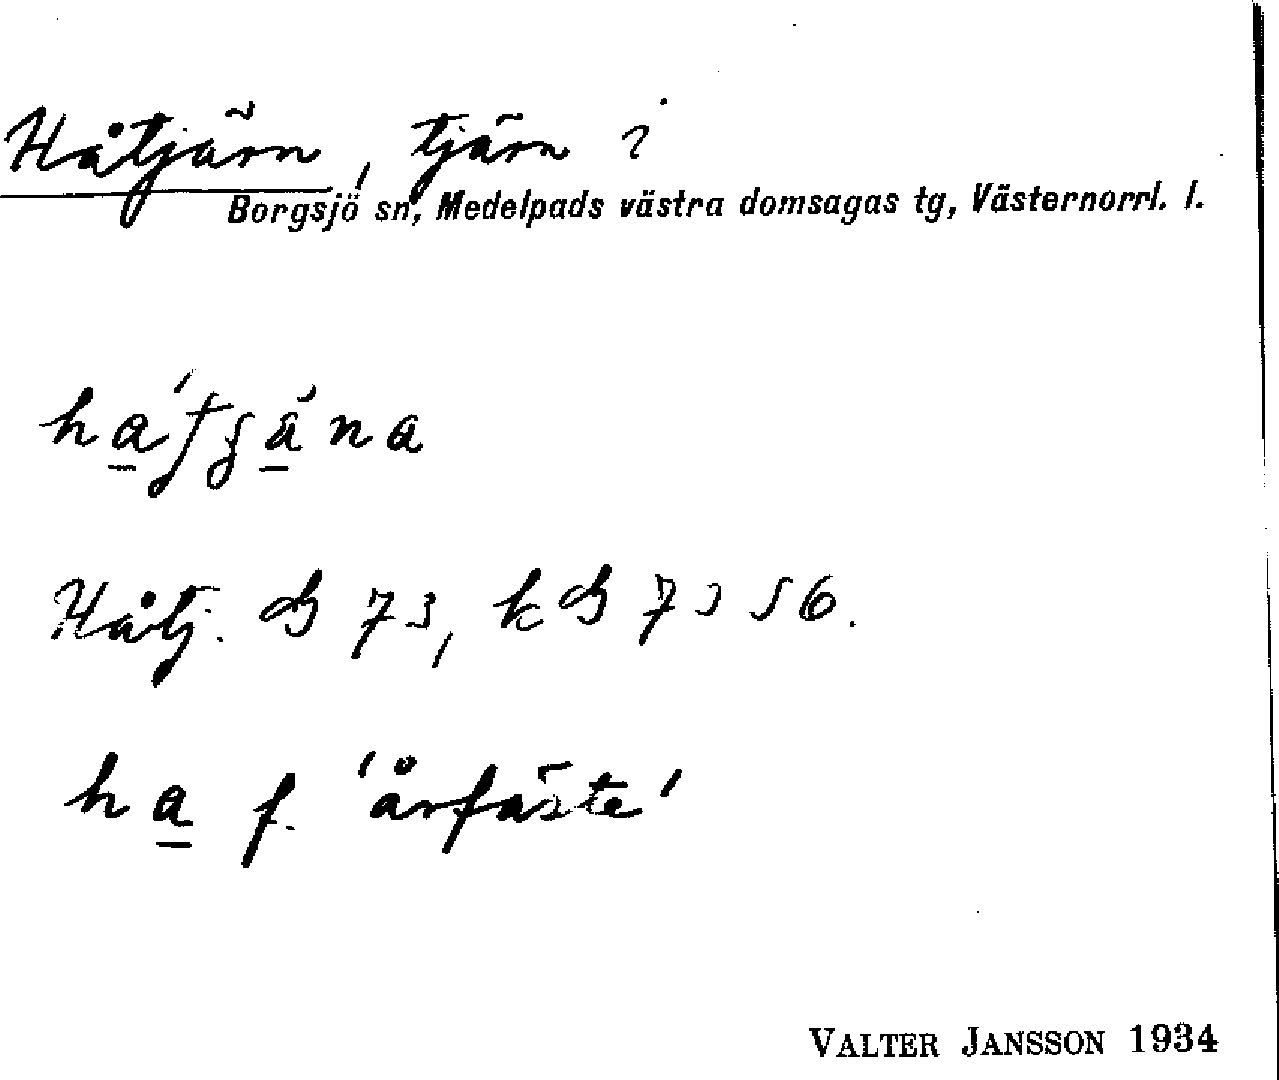 Håtjärn, tjärn i
Borgsjö sn, Medelpads västra domsagas tg, Västernorrl. l.
Håtj. GS 73, kGS 73 56.
ha f. 'årfäste'
VALTER JANSSON 1934